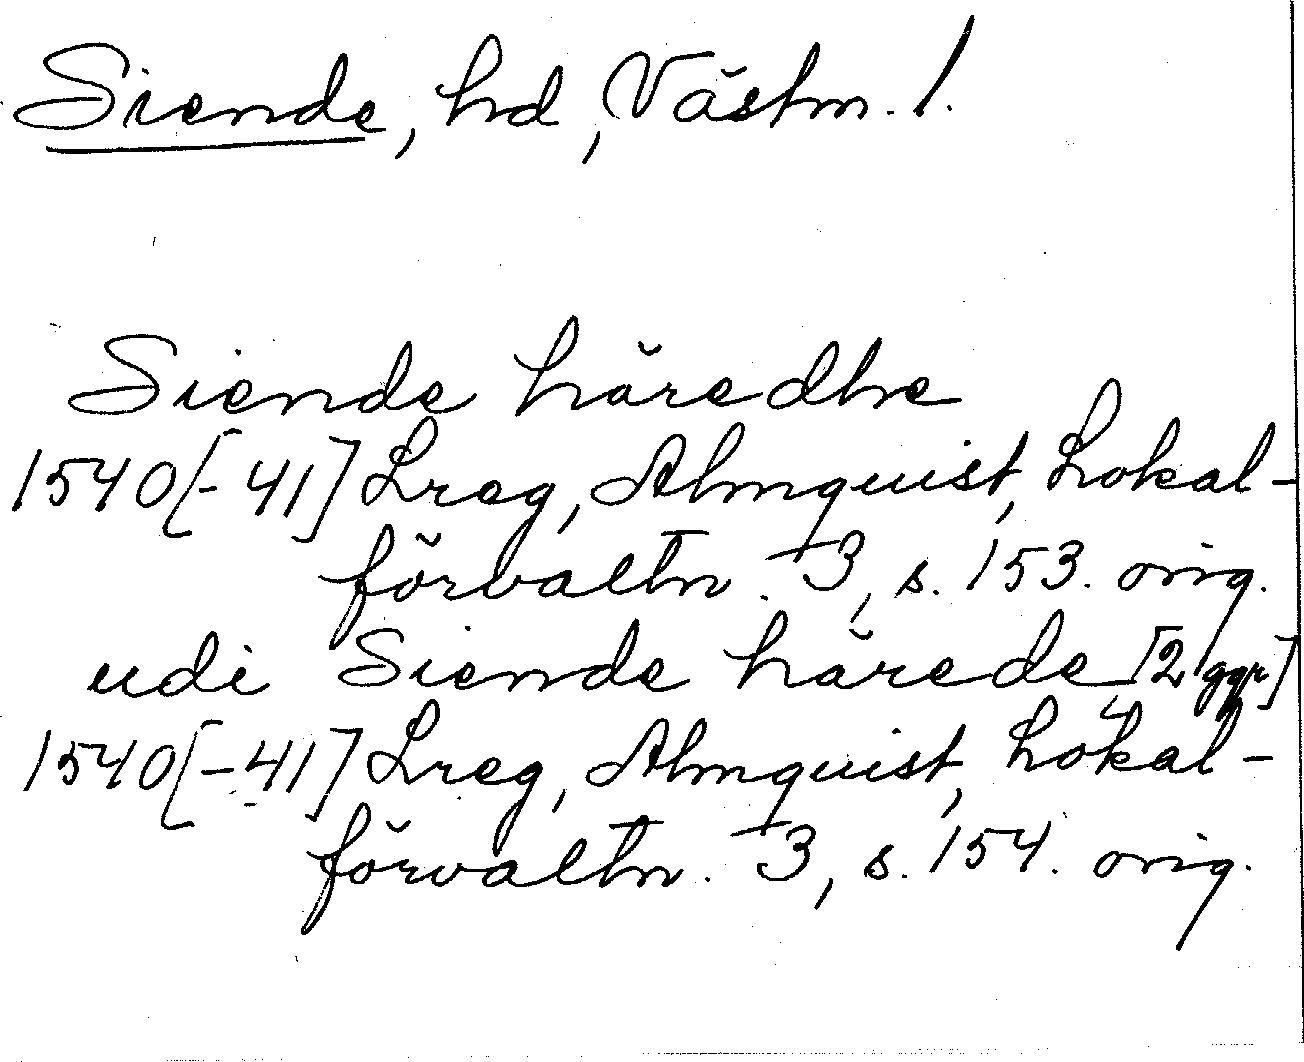 Siende, hd, Västm. l.
Siende häredhe
1540[-41] Lreg, Almquist, Lokal-
förvaltn. 3, s. 153. orig.
udi Siende härede [2 ggr]
1540[-41] Lreg, Almquist, Lokal-
förvaltn. 3, s. 154. orig.